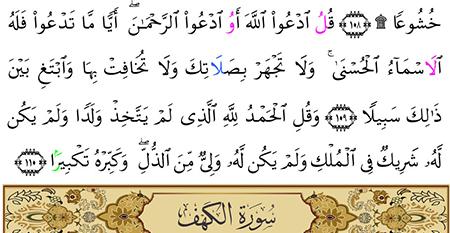 خُشُوعًا ۩ ١٠٨ قُلُ اُ۟دْعُوا۟ اُ۬للَّهَ أَوُ اُ۟دْعُوا۟ اُ۬لرَّحْمَٰنَۖ أَيًّا مَّا تَدْعُوا۟ فَلَهُ
اُ۬لَاسْمَآءُ اُ۬لْحُسْنَىٰۖ وَلَا تَجْهَرْ بِصَلَاتِكَ وَلَا تُخَافِتْ بِهَا وَابْتَغِ بَيْنَ
ذَٰلِكَ سَبِيلًا ١٠٩ وَقُلِ اِ۬لْحَمْدُ لِلهِ اِ۬لَّذِي لَمْ يَتَّخِذْ وَلَدًا وَلَمْ يَكُن
لَّهُۥ شَرِيكٌ فِي اِ۬لْمُلْكِ وَلَمْ يَكُن لَّهُۥ وَلِيٌّ مِّنَ اَ۬لذُّلِّۖ وَكَبِّرْهُ تَكْبِيرًا ١١٠
سُورَةُ الْكَهْفِ